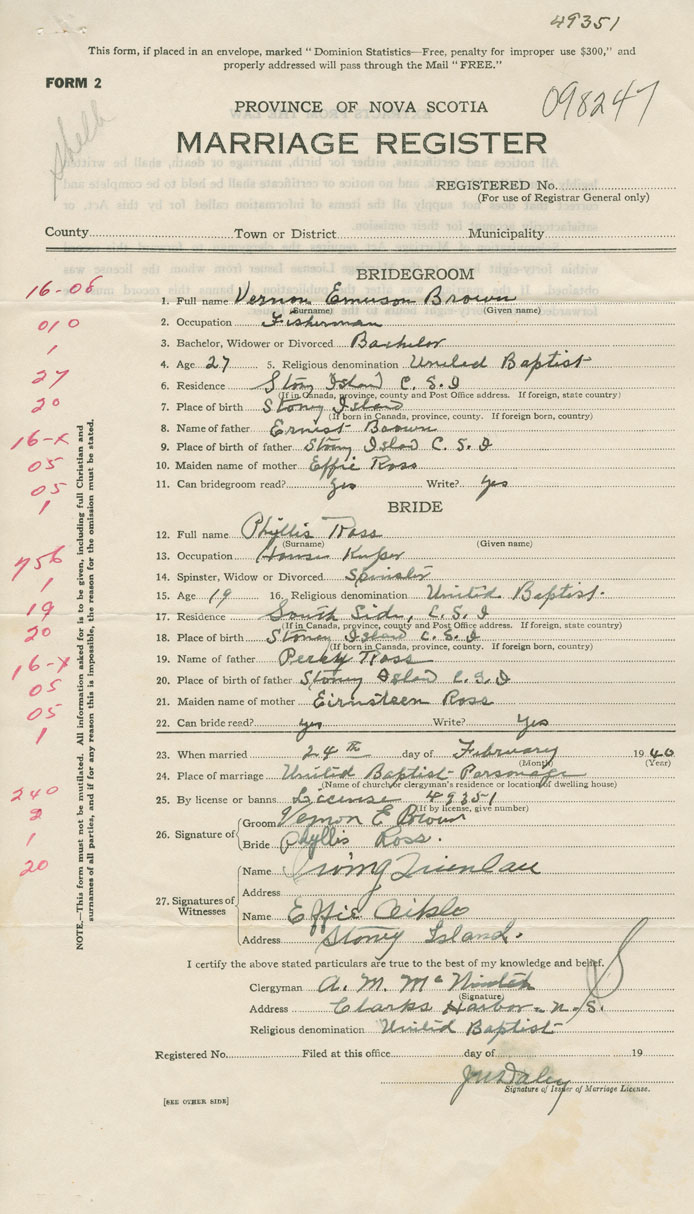 49351
This form, if placed in an envelope, marked "Dominion Statistics—Free, penalty for improper use $300," and
properly addressed will pass through the Mail "FREE."
FORM 2
098247
PROVINCE OF NOVA SCOTIA
Shelb
MARRIAGE REGISTER
REGISTERED No.
(For use of Registrar General only)
County Town or District Municipality
BRIDEGROOM
16-06
1. Full name Vernon Emerson Brown
(Surname) (Given name)
010
2. Occupation Fisherman
1
3. Bachelor, Widower or Divorced Bachelor
27
4. Age 27 5. Religious denomination United Baptist
20
6. Residence Stony Island C. S. I
(If in Canada, province, county and Post Office address. If foreign, state country)
7. Place of birth Stoney Island
(If born in Canada, province, county. If foreign born, country)
16-X
8. Name of father Ernest Brown
05
9. Place of birth of father Stony Island C. S. I
05
10. Maiden name of mother Effie Ross
1
11. Can bridegroom read? Yes Write? Yes
BRIDE
12. Full name Phyllis Ross
(Surname) (Given name)
756
13. Occupation House
1
14. Spinster, Widow or Divorced Spinster
19
15. Age 19 16. Religious denomination United Baptist.
20
17. Residence South Side, C. S. I
(If in Canada, province, county and Post Office address. If foreign, state country)
18. Place of birth Stoney Island C. S. I
(If born in Canada, province, county. If foreign born, country)
16-X
19. Name of father Percy Ross
05
20. Place of birth of father Stoney Island C. S. I
05
21. Maiden name of mother Ross
1
22. Can bride read? yes Write? Yes
23. When married 24th day of February 1940
(Month) (Year)
24. Place of marriage United Baptist Parsonage
(Name of church or clergyman's residence or location of dwelling house)
240
25. By license or banns License 49351
(If by license, give number)
2
26. Signature of Groom Vernon E Brown
1
Bride Phyllis Ross.
20
27. Signatures of Witnesses
Name Irving
Address
Name Effie
Address Stoney Island.
NOTE.—This form must not be mutilated. All information asked for is to be given, including full Christian and
surnames of all parties, and if for any reason this is impossible, the reason for the omission must be stated.
I certify the above stated particulars are true to the best of my knowledge and belief.
Clergyman A. M. McNintch
(Signature)
Address Clarks Harbor - N. S.
Religious denomination United Baptist
Registered No. Filed at this office day of 19
J W Daley
Signature of Issuer of Marriage License.
[SEE OTHER SIDE]